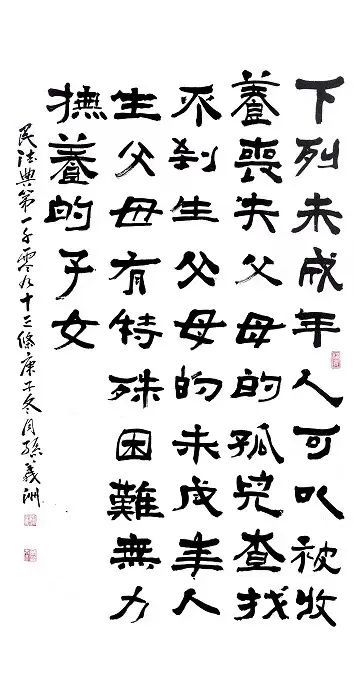 下列未成年人可以被收
養喪失父母的孤兒查找
不到生父母的未成年人
生父母有特殊困難無力
撫養的子女
民法典第一千零九十三條庚子冬月孫義洲